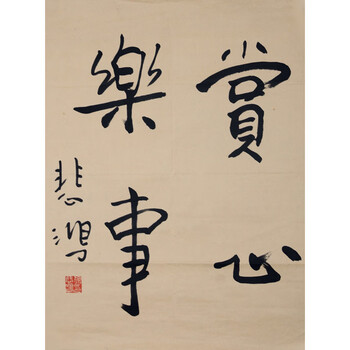 賞心
樂事
悲鴻